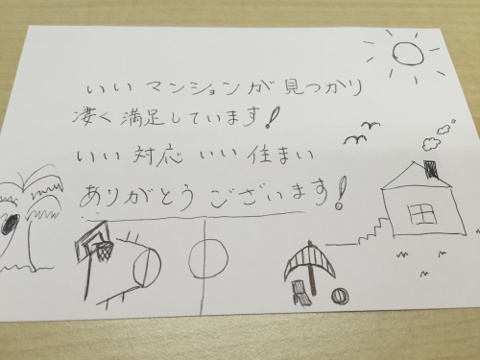 いいマンションが見つかり
凄く満足しています!
いい対応いい住まい
ありがとうございます!